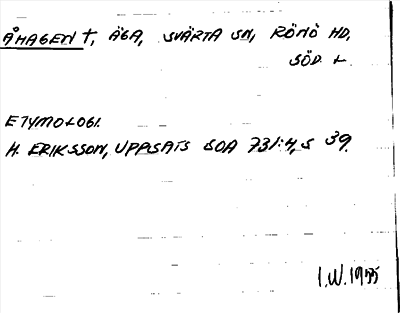 ÅHAGEN †, ÄGA, SVÄRTA SN, RÖNÖ HD,
SÖD. L.
ETYMOLOGI.
H. ERIKSSON, UPPSATS SOA 731:4, S 39.
I.W. 1955